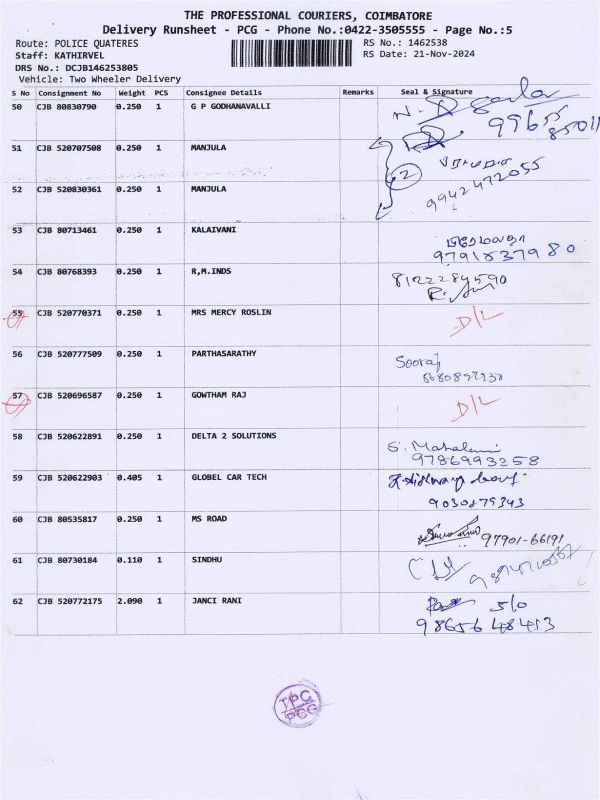 THE PROFESSIONAL COURIERS, COIMBATORE
Delivery Runsheet - PCG - Phone No.:0422-3505555 - Page No.:5
Route: POLICE QUATERES RS No.: 1462538
Staff: KATHIRVEL RS Date: 21-Nov-2024
DRS No.: DCJB146253805
Vehicle: Two Wheeler Delivery
S No Consignment No Weight PCS Consignee Details Remarks Seal & Signature
50 CJB 80830790 0.250 1 G P GODHANAVALLI
51 CJB 520707508 0.250 1 MANJULA
2
9942472055
52 CJB 520830361 0.250 1 MANJULA
53 CJB 80713461 0.250 1 KALAIVANI
9791837980
54 CJB 80768393 0.250 1 R,M.INDS
8122284590
55 CJB 520770371 0.250 1 MRS MERCY ROSLIN
D/L
56 CJB 520777509 0.250 1 PARTHASARATHY
Sooraj
57 CJB 520696587 0.250 1 GOWTHAM RAJ
D/L
58 CJB 520622891 0.250 1 DELTA 2 SOLUTIONS
9786993258
59 CJB 520622903 0.405 1 GLOBEL CAR TECH
9030879343
60 CJB 80535817 0.250 1 MS ROAD
97901-66191
61 CJB 80730184 0.110 1 SINDHU
62 CJB 520772175 2.090 1 JANCI RANI
S/o
9865648413
TPC
PCG